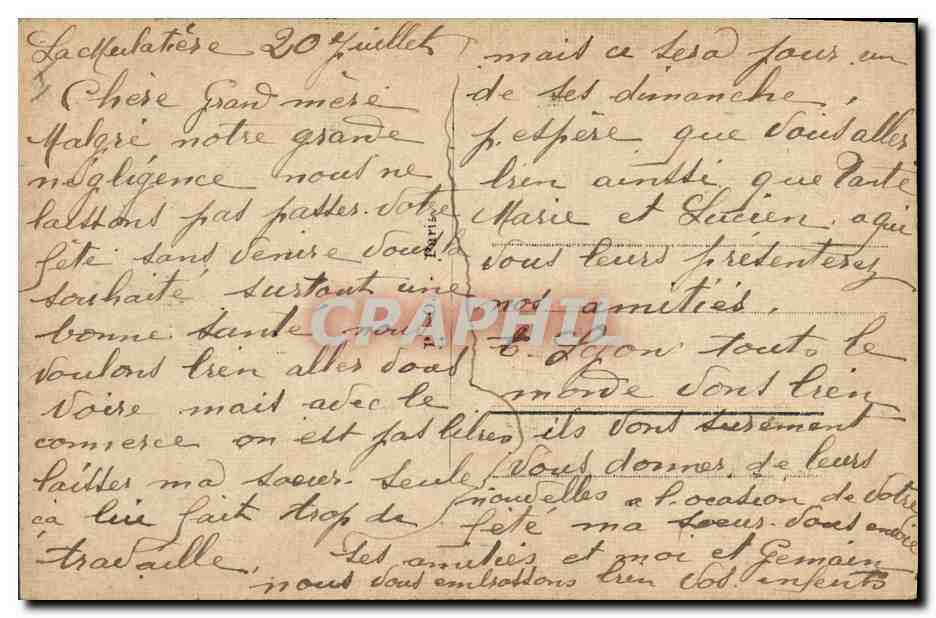 La Mulatière 20 Juillet
Chère Grand mère
Malgré notre grande
négligence nous ne
laissons pas passer votre
fête sans venire vous la
souhaité surtout une
bonne sante nous
voulons bien aller vous
voire mais avec le
commerce on est pas libres
laisser ma soeur seule
ca lui fait trop de
travaille,
mais ce sera pour un
de ses dimanche,
j'espère que vous aller
bien ainsi que Tante
Marie et Lucien a qui
vous leurs présenterez
nos amitiés,
a Lyon touts le
monde vont bien
ils vont surement
vous donner de leurs
nouvelles a l'ocasion de votre
fête ma soeur vous envoie
ses amitiés et moi et Gemain
nous vous embrassons bien vos enfents
Paris
CRAPHIL